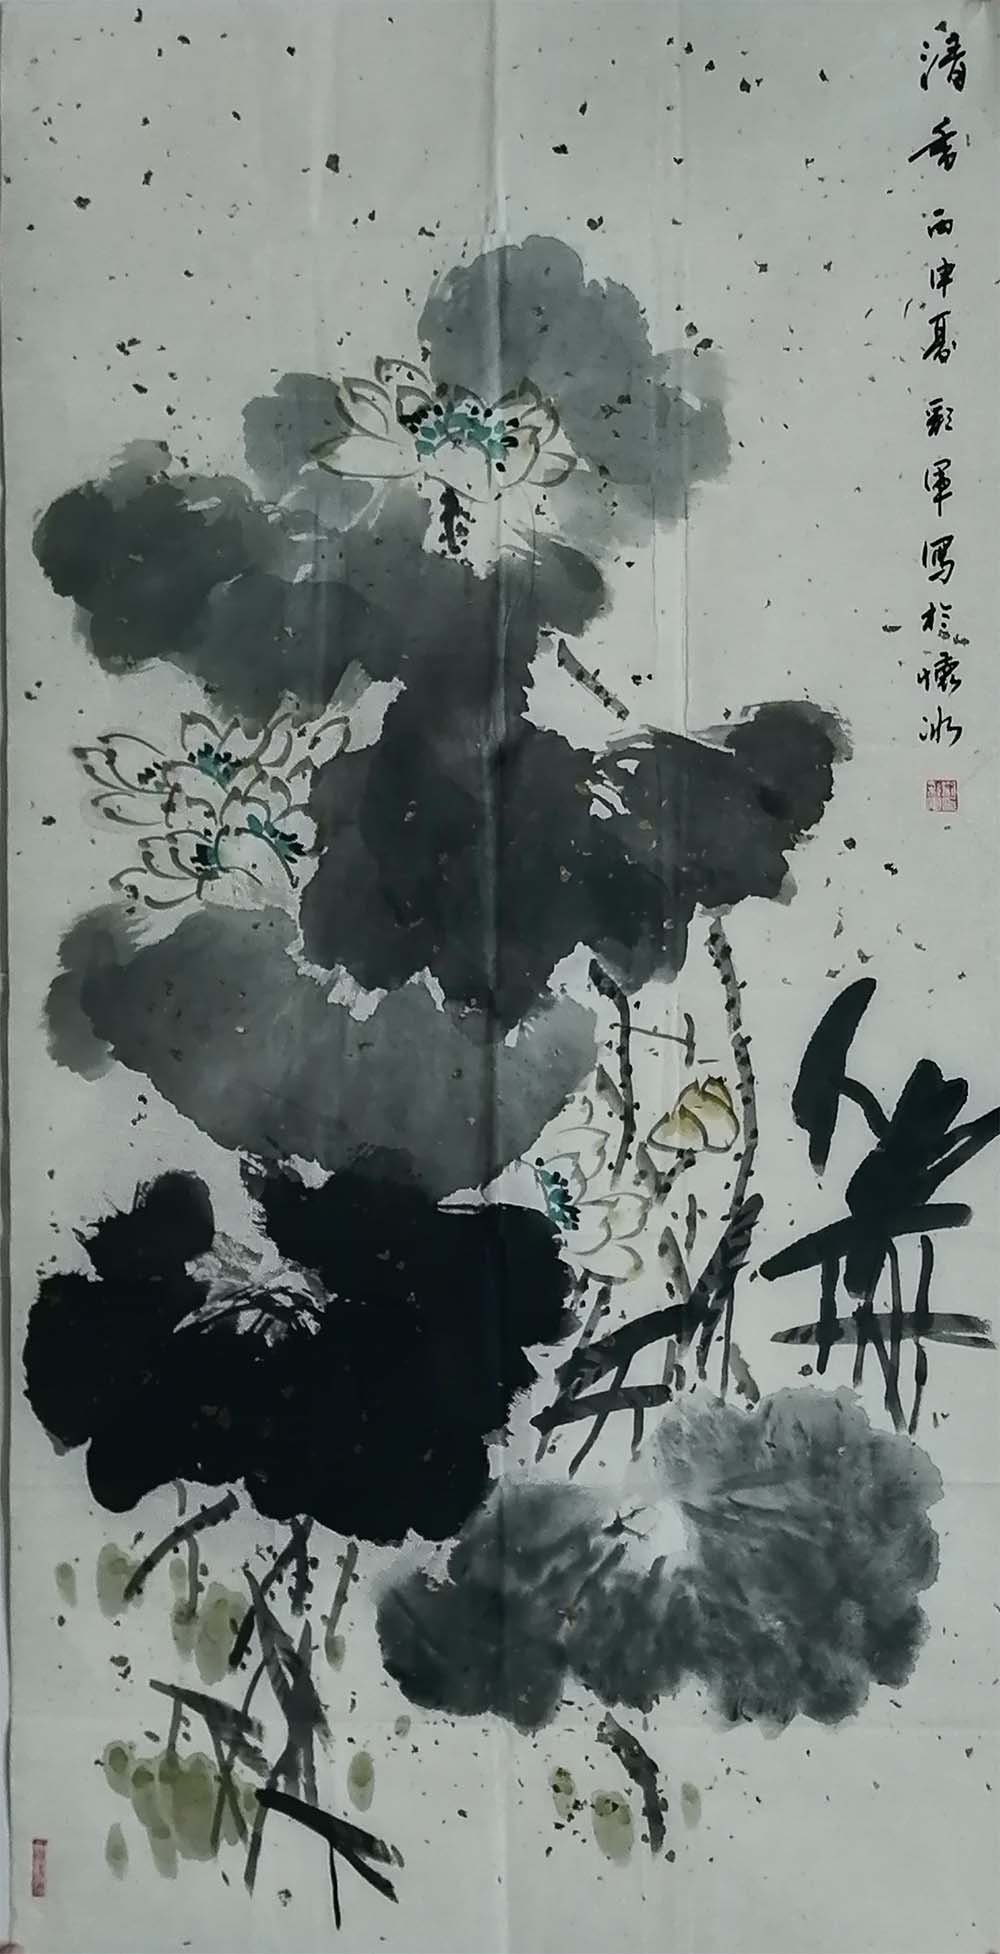 清香丙申夏彩軍寫於懷冰